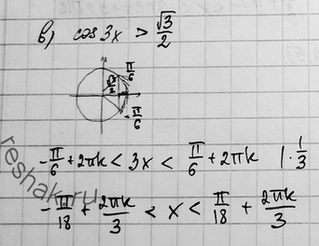 в) cos 3x > √3/2
π/6
√3/2
-π/6
-π/6 + 2πk < 3x < π/6 + 2πk | · 1/3
-π/18 + 2πk/3 < x < π/18 + 2πk/3
reshak.ru